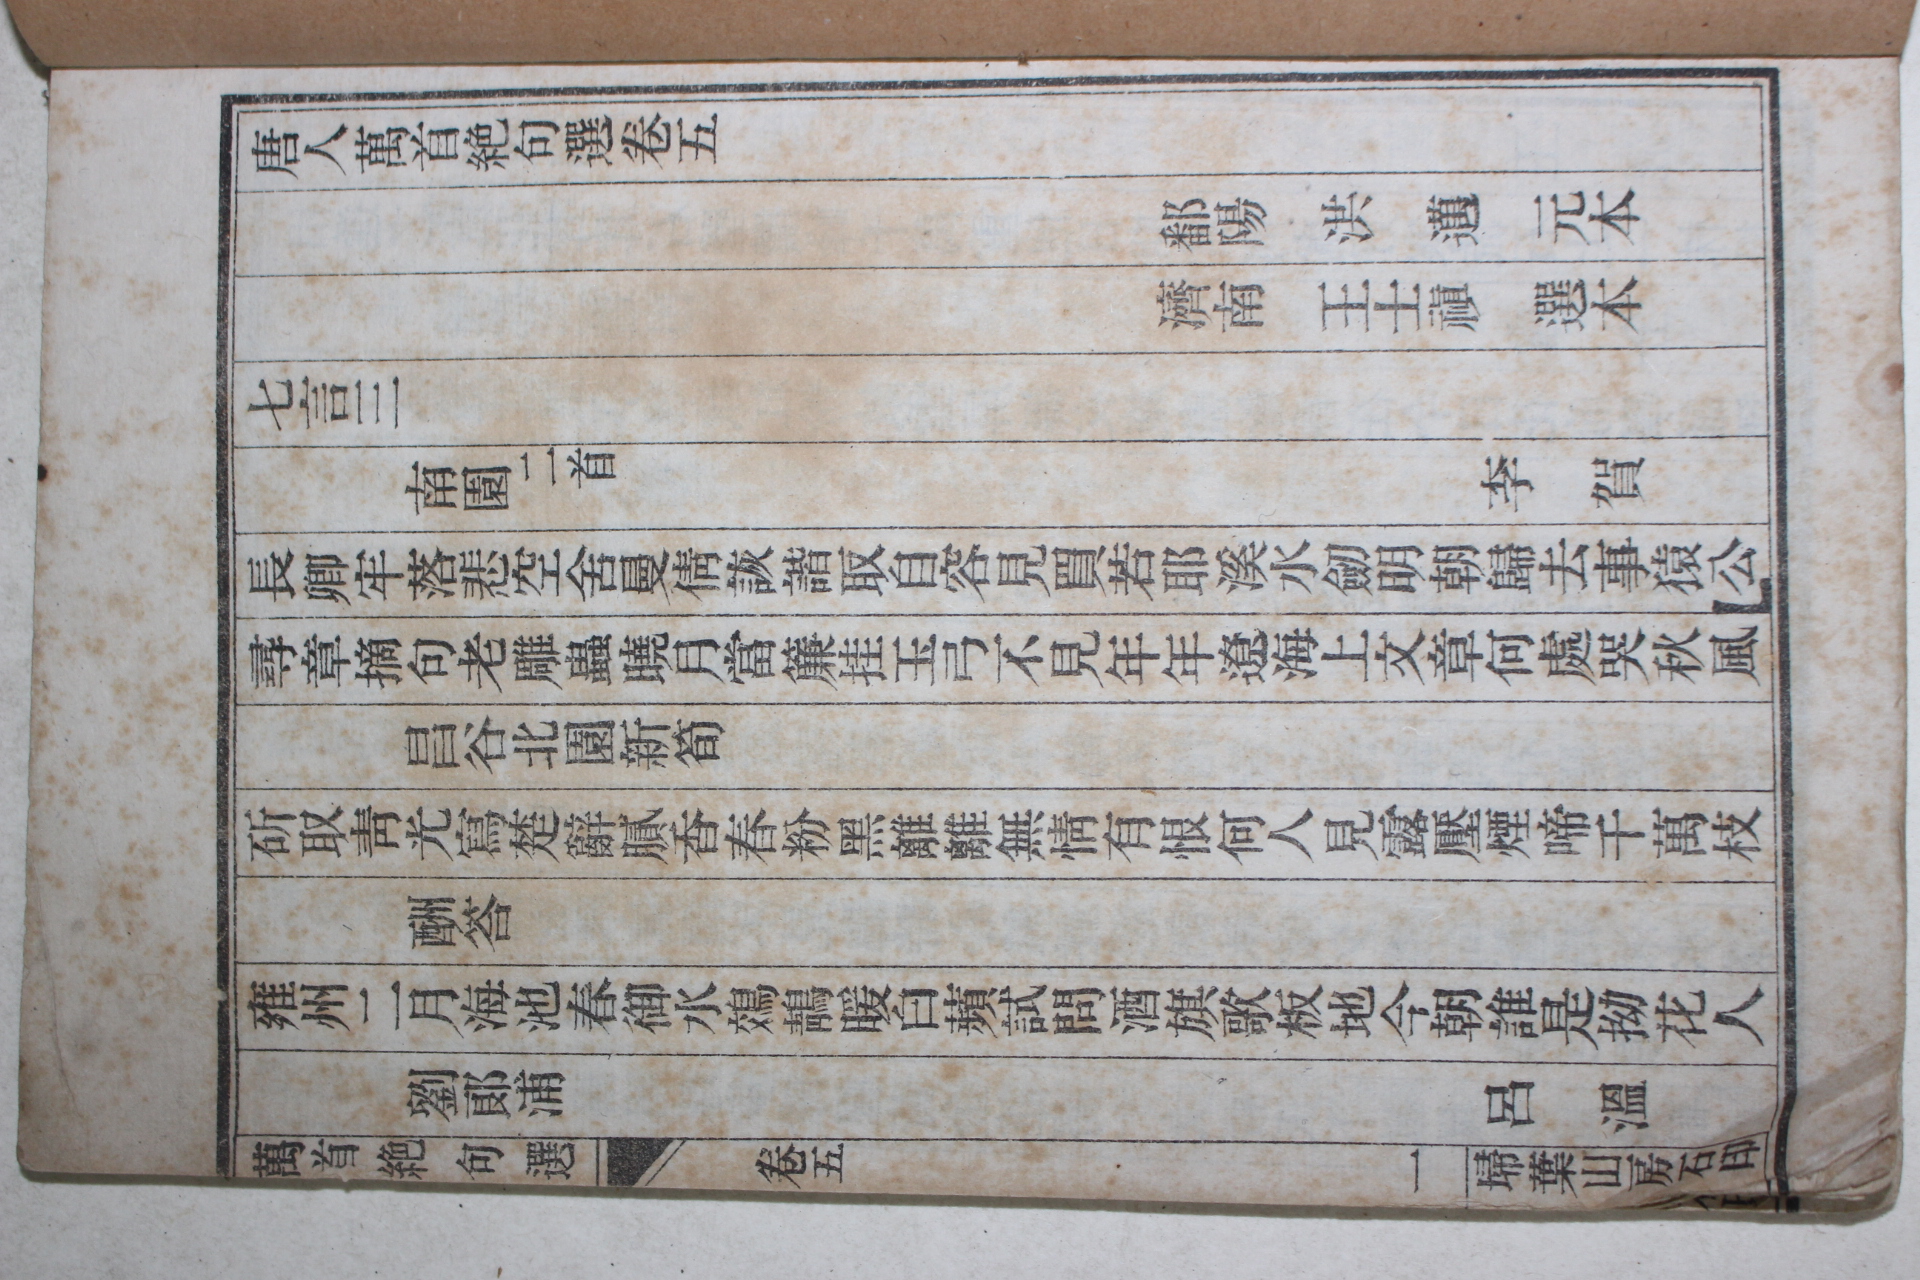 唐人萬首絕句選卷五
鄱陽 洪 邁 元本
濟南 王士禛 選本
七言三
南園二首 李 賀
長卿牢落悲空舍曼倩詼諧取自容見買若耶溪水劒明朝歸去事猿公
尋章摘句老雕蟲曉月當簾挂玉弓不見年年遼海上文章何處哭秋風
昌谷北園新筍
斫取青光寫楚辭膩香春粉黑離離無情有恨何人見露壓煙啼千萬枝
酬答
雍州二月海池春御水鵁鶄暖白蘋試問酒旗歌板地今朝誰是拗花人
劉郎浦 呂 溫
萬首絕句選 卷五 一 埽葉山房石印